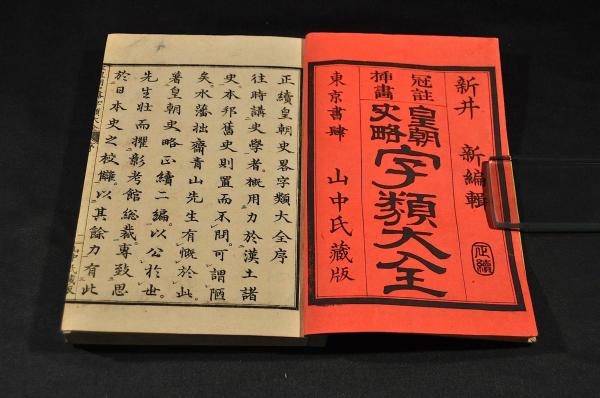 新井　新編輯
正續
冠註
挿畫
皇朝
史略
字類大全
東京書肆　山中氏藏版
正續皇朝史畧字類大全序
往時講史學者概用力於漢土諸
史本邦舊史則置而不問可謂陋
矣水藩拙齋青山先生有慨於此
著皇朝史略正續二編以公於世
先生壯而擢彰考館総裁專致思
於日本史之校讎以其餘力有此